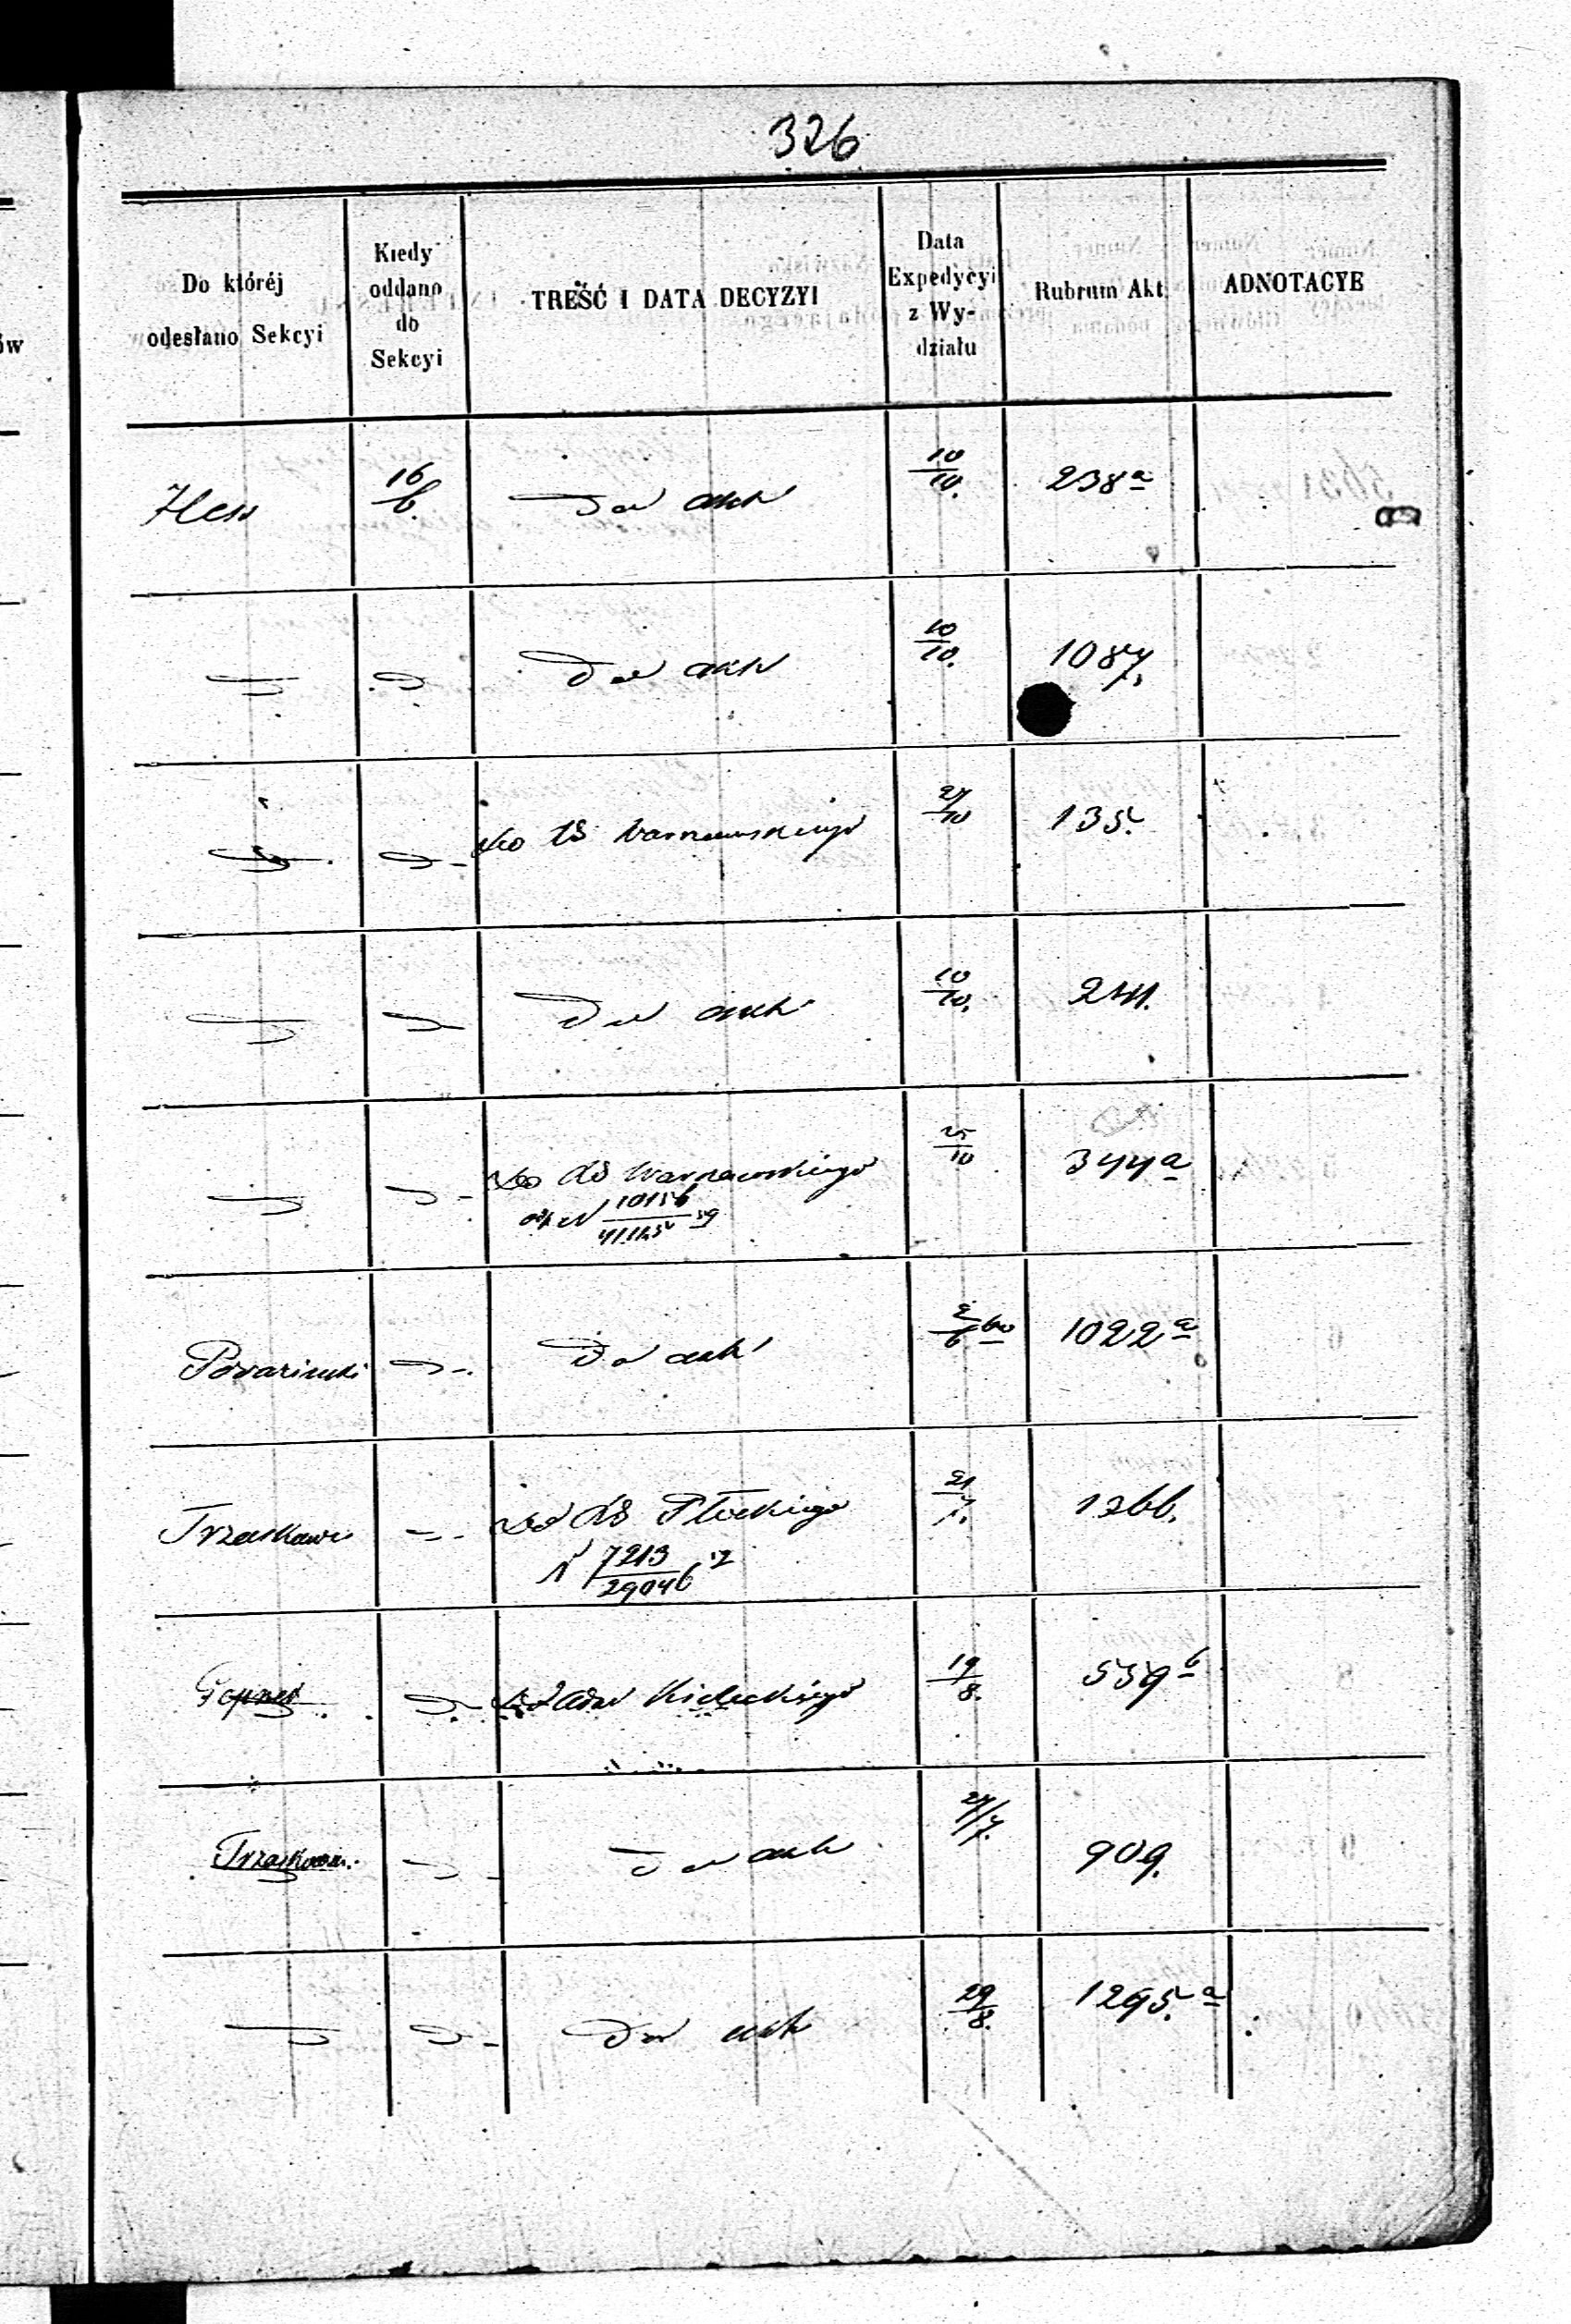 326
Do któréj odesłano Sekcyi
Kiedy oddano do Sekcyi
TREŚĆ I DATA DECYZYI
Data Expedycyi z Wydziału
Rubrum Akt
ADNOTACYE
Hess 16/6. Do akt 10/10. 238a
Do akt 10/10. 1087.
Do Warszawskiego 27/10 135.
Do akt 10/10. 241.
Do Warszawskiego 25/10 344a
N 10156
Do akt 2/6 60 1022a
Trzaskows Do Płockiego 21/7. 1366.
N 7213/29046 52
Kieleckiego 19/8. 559b
Trzaskows. Do akt 27/7. 909.
Do akt 29/8. 1295.a